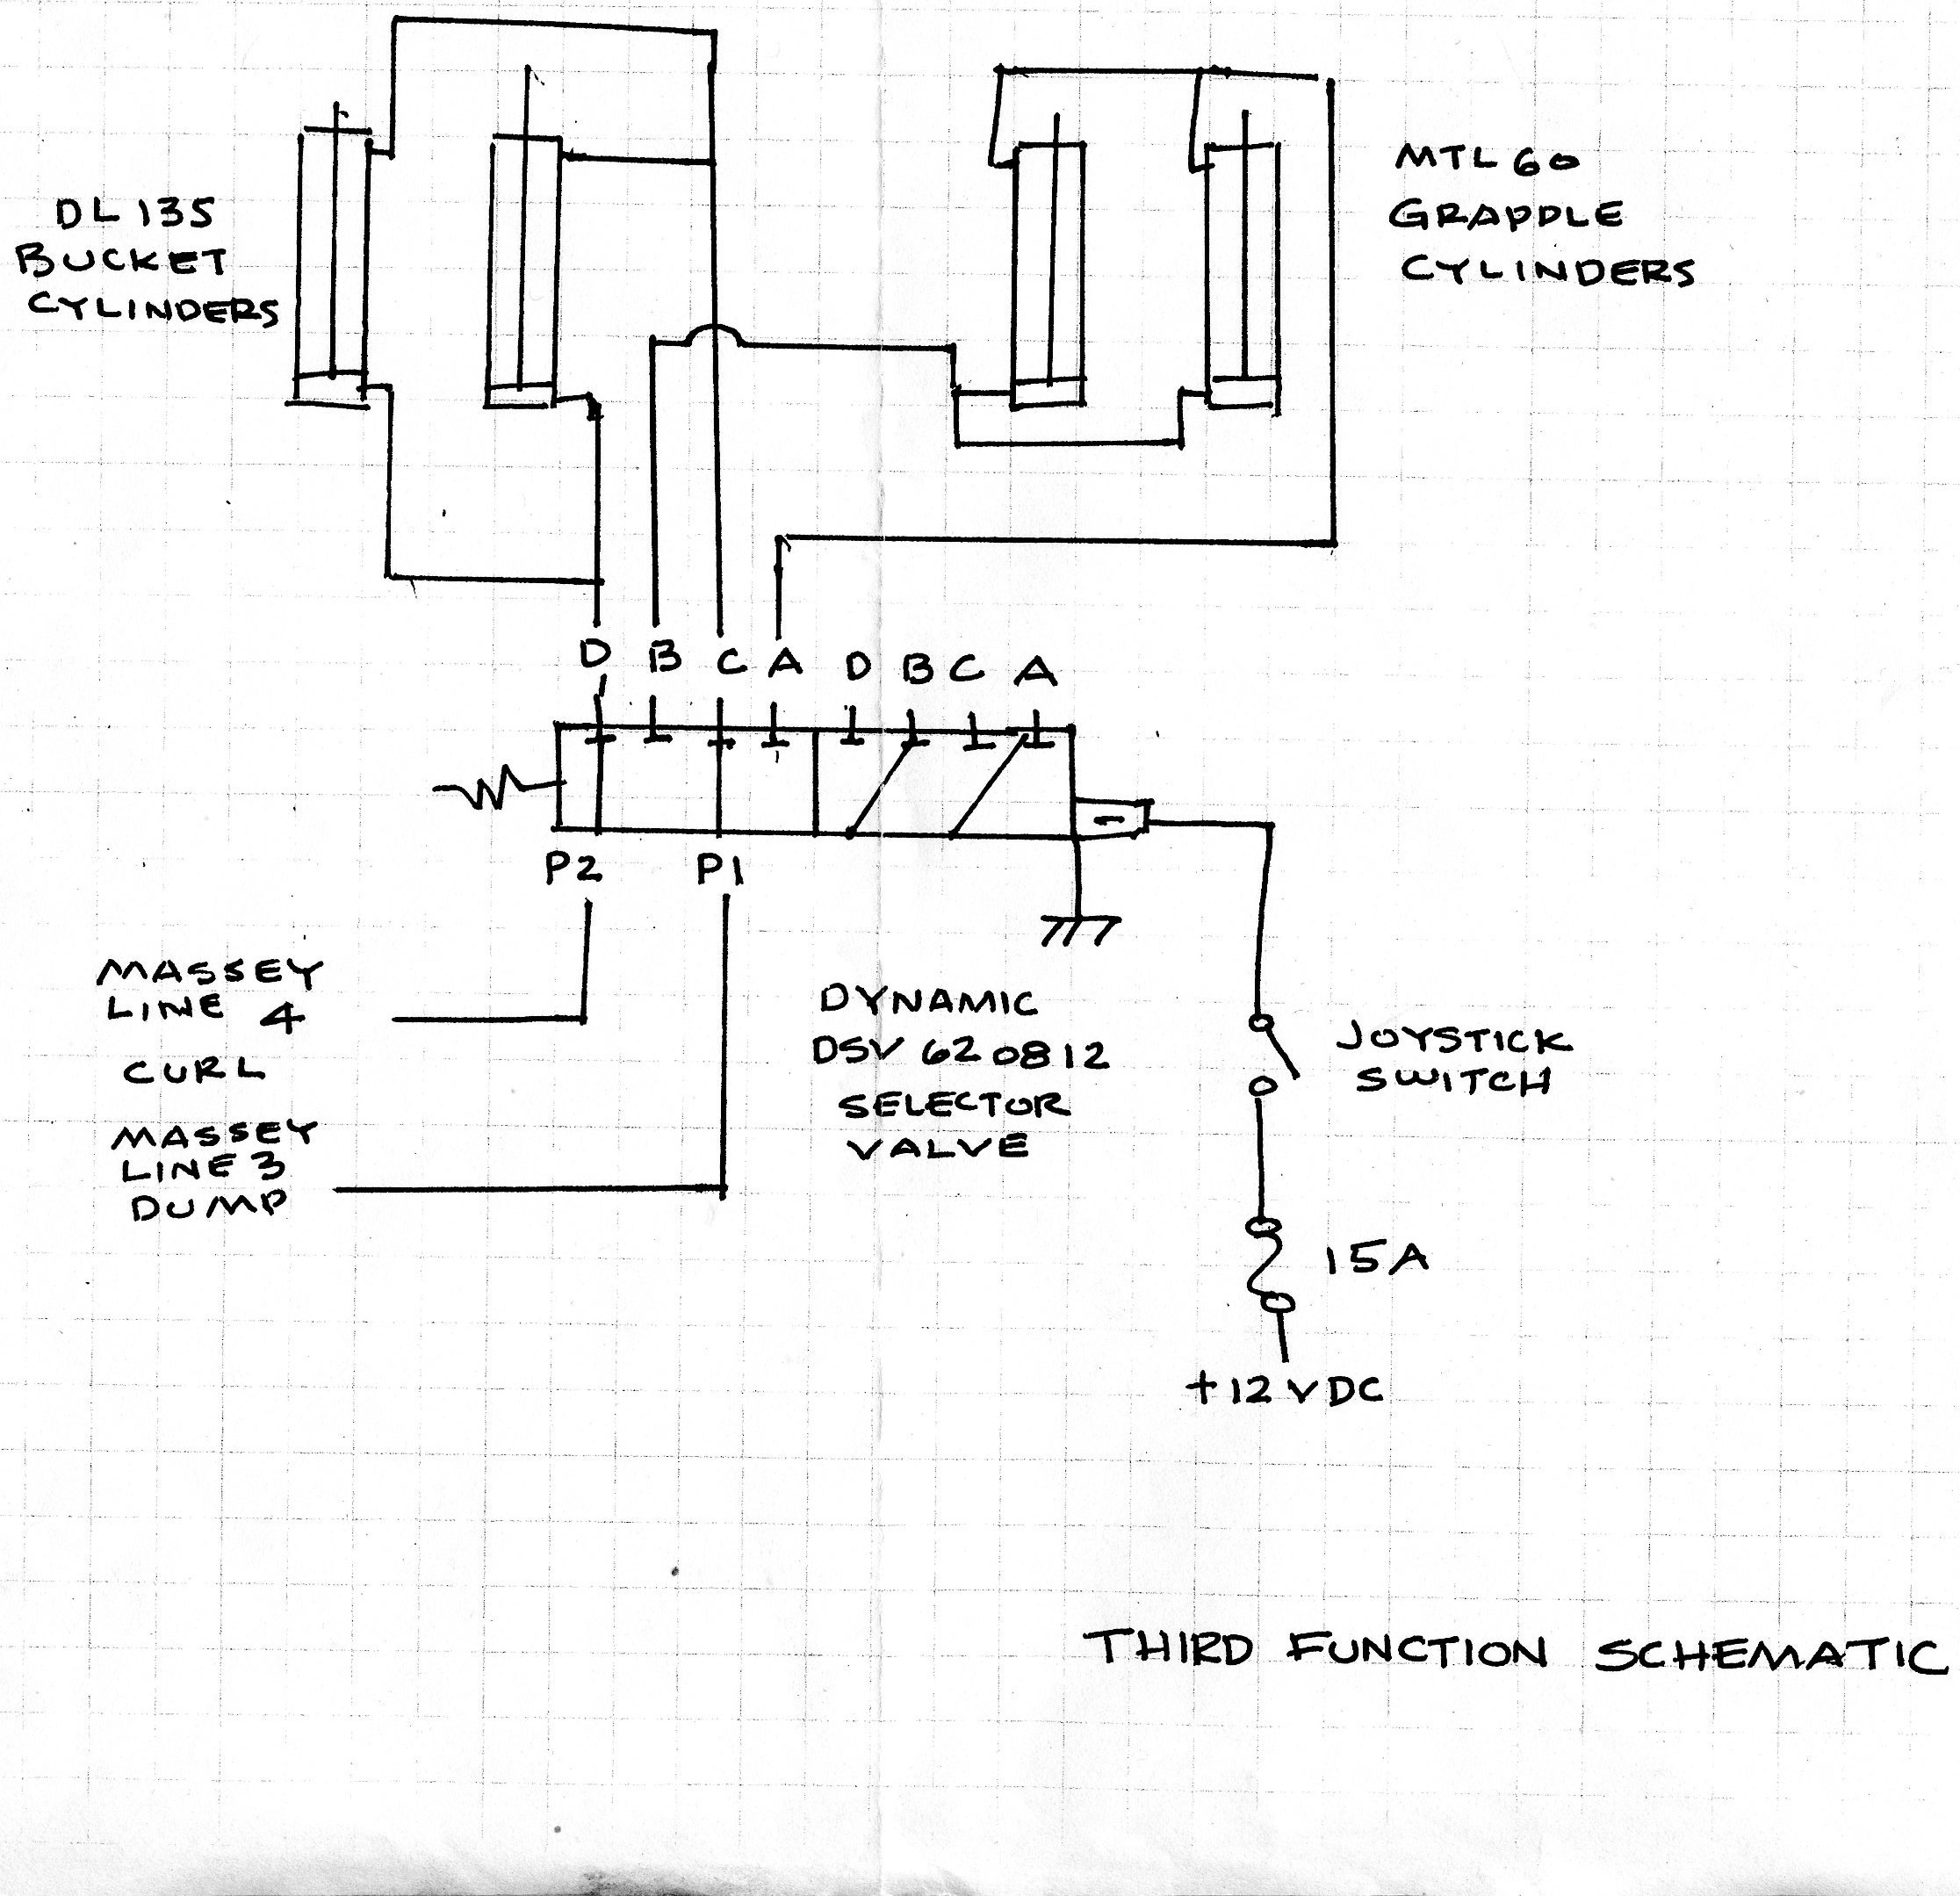 DL 135
BUCKET
CYLINDERS
MTL 60
GRAPPLE
CYLINDERS
D B C A D B C A
P2 P1
MASSEY
LINE 4
CURL
MASSEY
LINE 3
DUMP
DYNAMIC
DSV 620812
SELECTOR
VALVE
JOYSTICK
SWITCH
15A
+12 VDC
THIRD FUNCTION SCHEMATIC